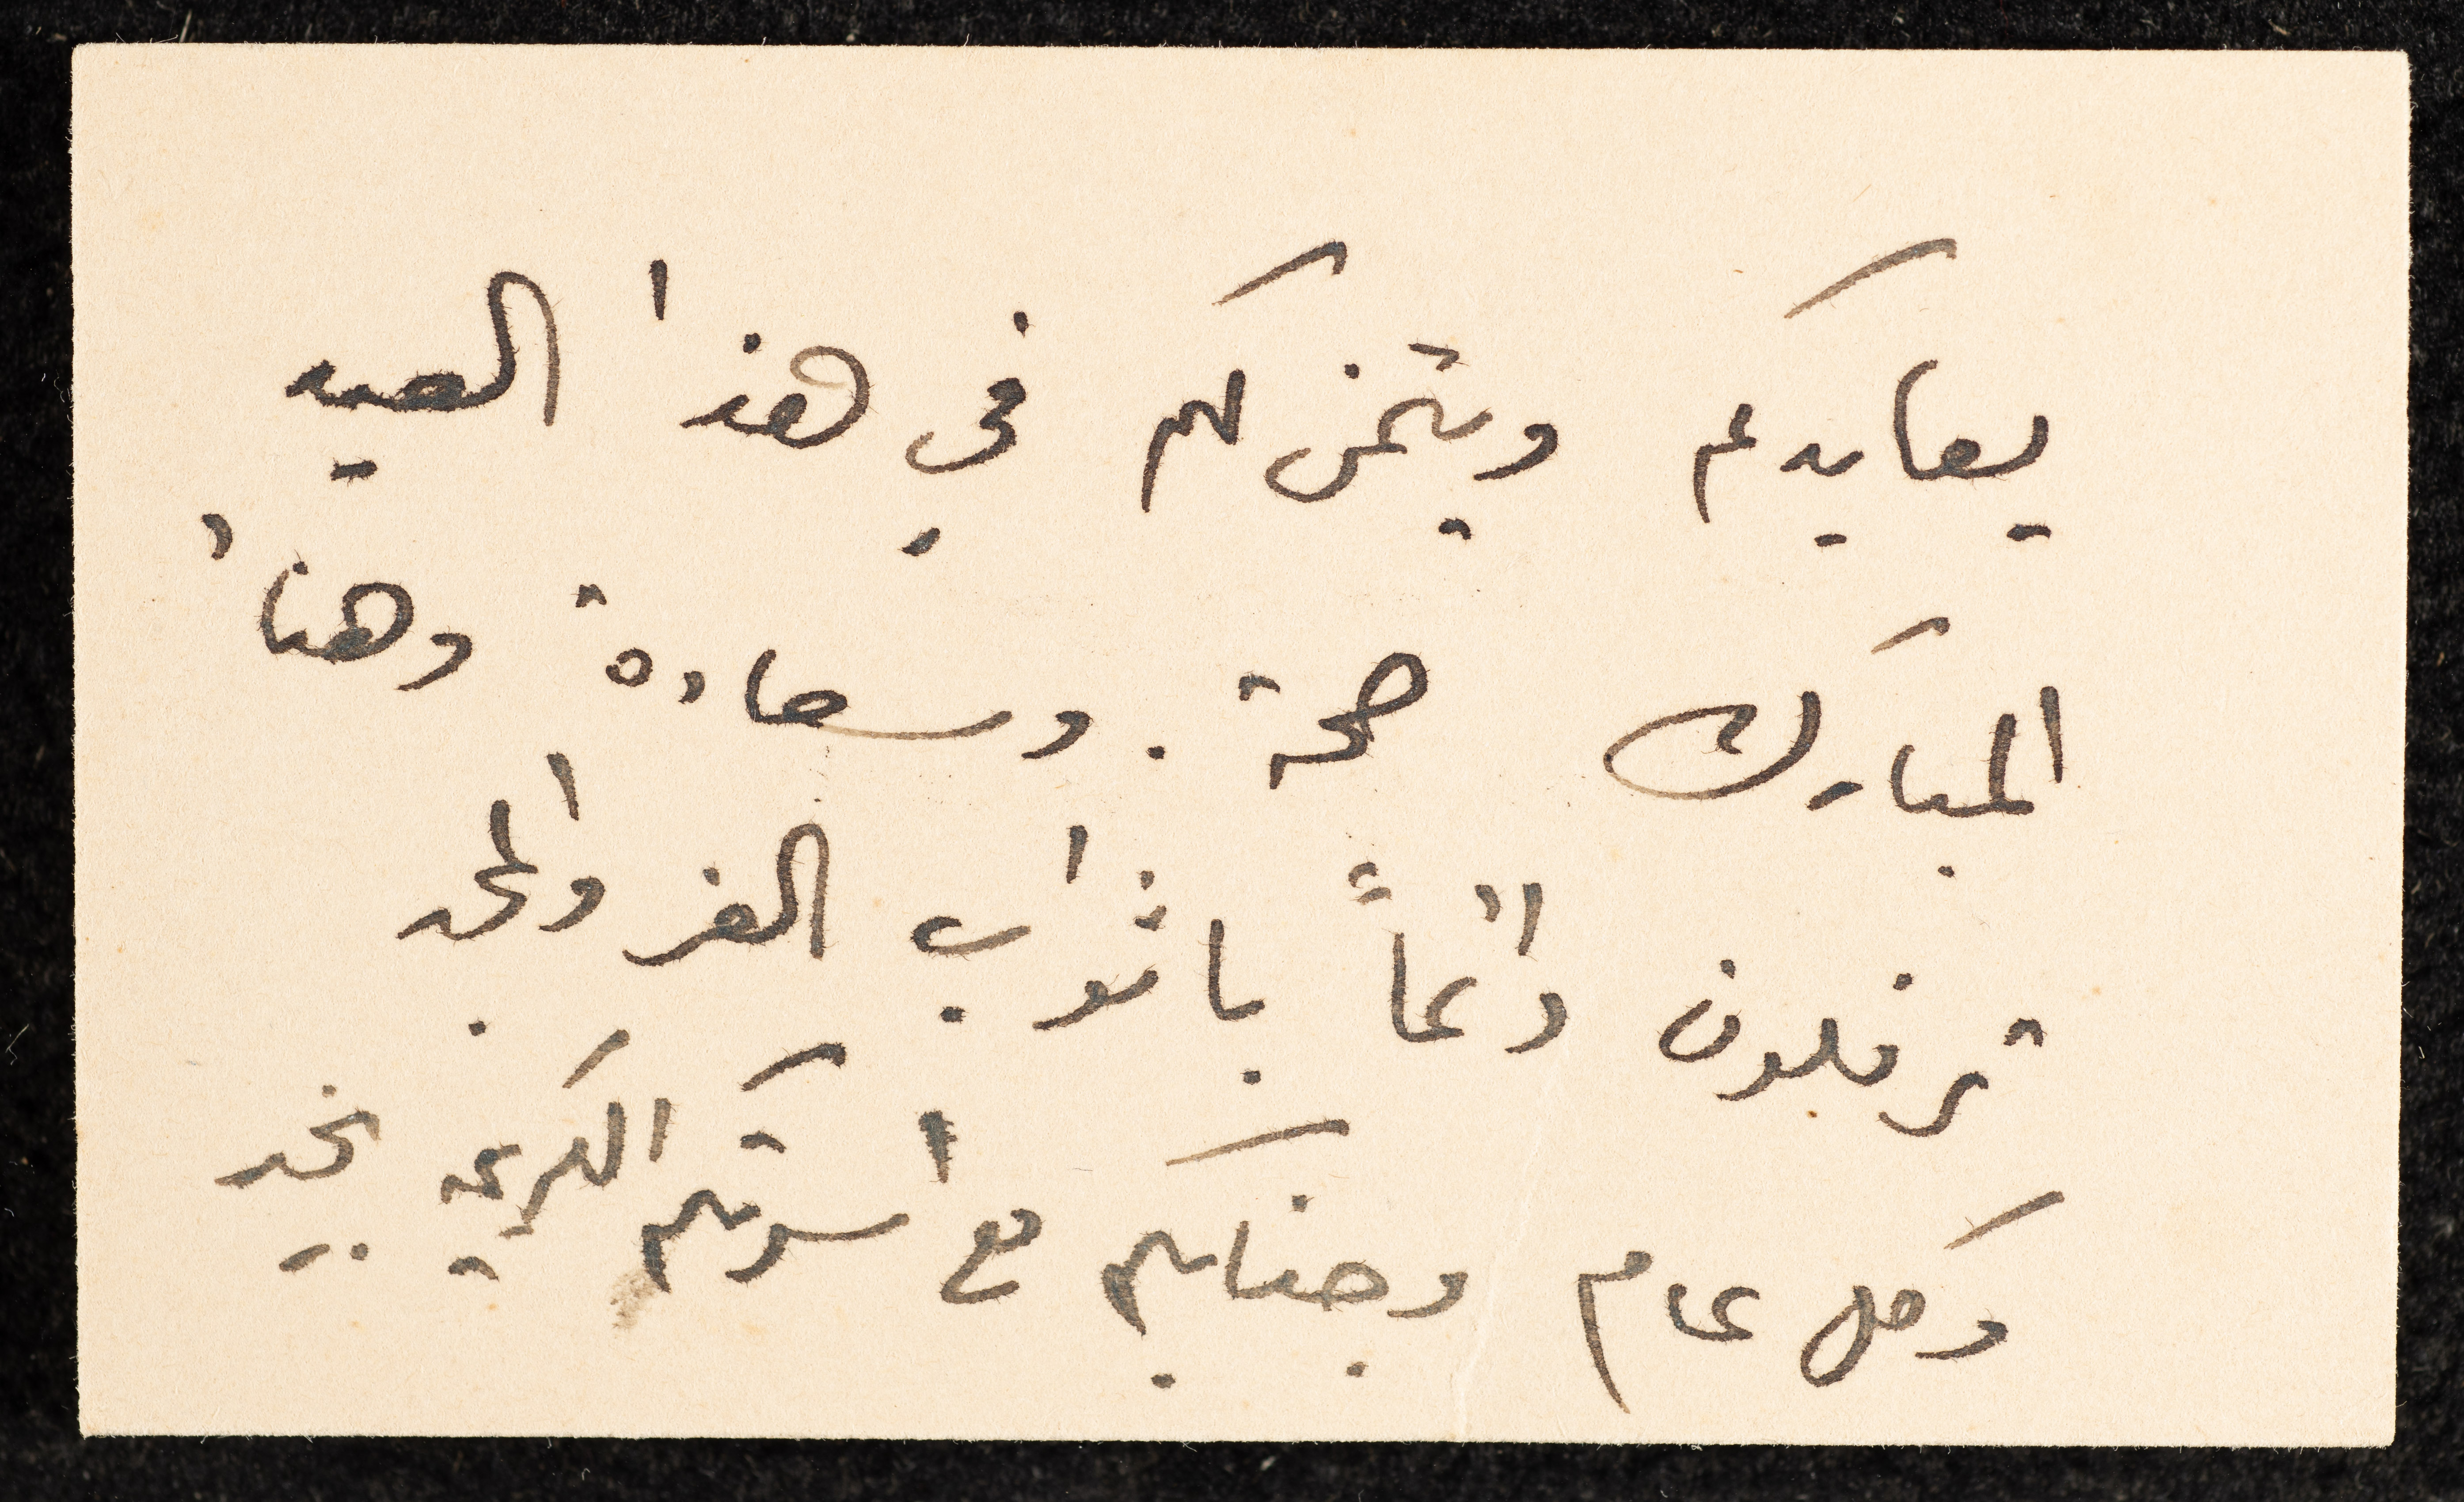 يعايدكم ويتمنى لكم في هذا العيد
المبارك صحة وسعادة وهناء
ترفلون دائماً باثواب العز والمجد
وكل عام وجنابكم مع اسرتكم الكريمة بخير